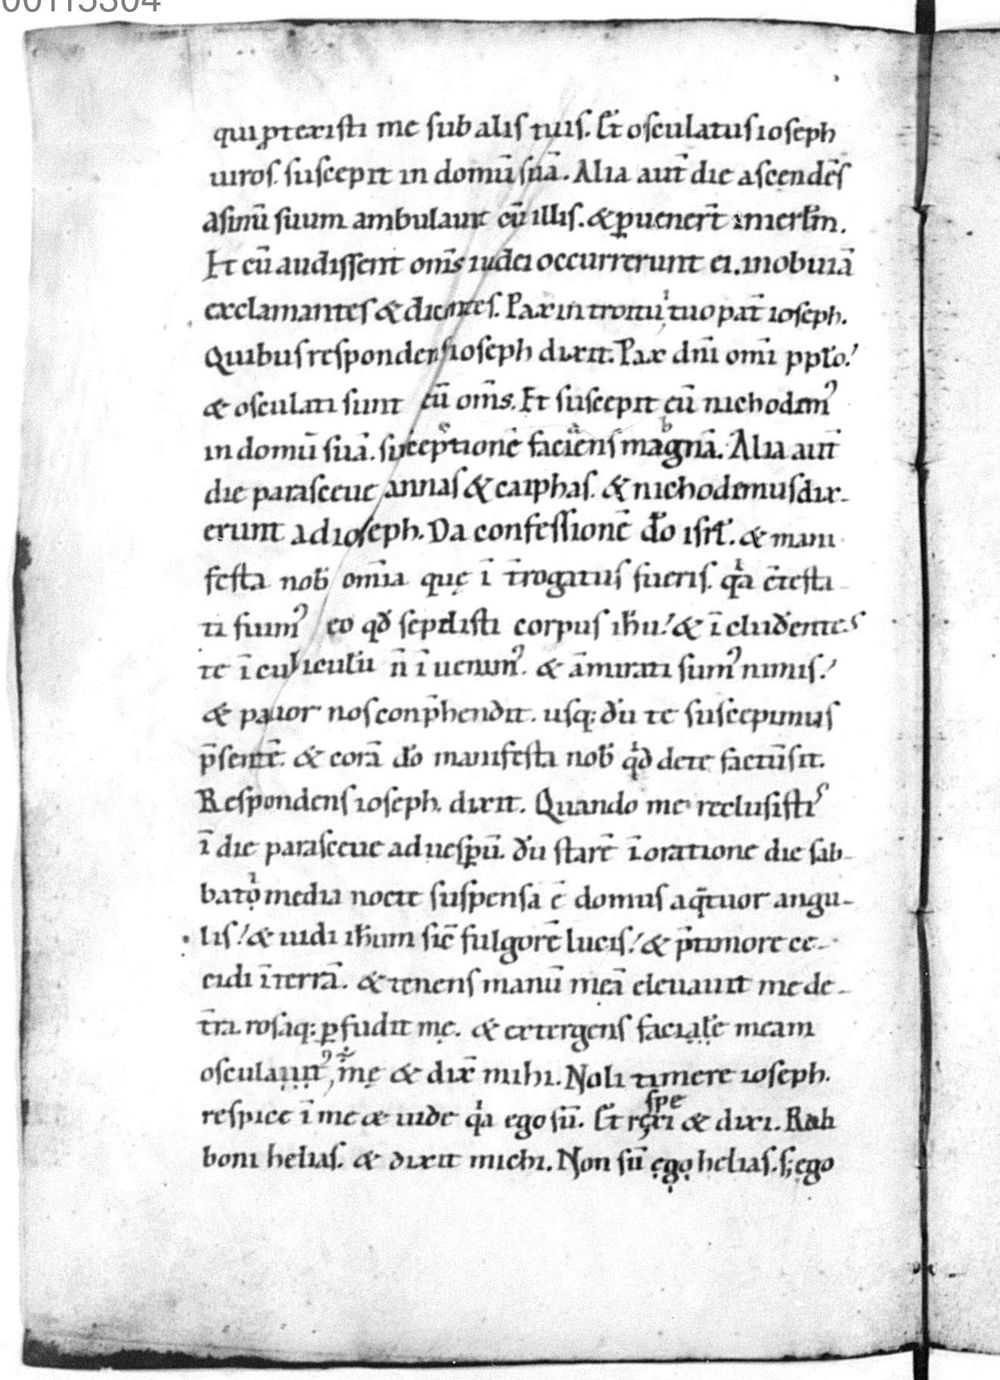 00115304
qui ꝓtexisti me sub alis tuis. Et osculatus ioseph
uiros. suscepit in domū suā. Alia aut̄ die ascendēs
asinū suum ambulauit cū illis. & ꝑuener̄t in ierl̄m.
Et cū audissent om̄s iudei occurrerunt ei. in obuiā
exclamantes & dicentes. Pax in troitu tuo pat̄ ioseph.
Quibus respondens ioseph dixit. Pax dn̄i om̄i pp̄lo.
& osculati sunt eū om̄s. Et suscepit eū nichodem᷒
in domū suā. susceptionē faciens magnā. Alia aut̄
die parasceue annas & caiphas. & nichodemus dix-
erunt ad ioseph. Da confessionē d̄o isrl̄. & mani
festa nob̄ om̄ia quę ī t̄rogatus fueris. qͥa c̄testa
ti sum᷒ eo qđ sepelisti corpus ih̄u. & ī cludentes
te ī cubiculū n̄ ī uenim᷒. & āmirati sum᷒ nimis.
& pauor nos conp̄hendit. usq; dū te suscepimus
p̄sentē. & corā d̄o manifesta nob̄ qͥd de te factū sit.
Respondens ioseph. dixit. Quando me reclusistis
ī die parasceue ad uesꝑū. dū starē ī oratione die sab-
bato media nocte suspensa ē domus a q̄tuor angu-
lis. & uidi ih̄um sic̄ fulgorē lucis. & p̄ timore ce-
cidi ī terrā. & tenens manū meā eleuauit me de-
t̄ra. rosaq; ꝑfudit me. & extergens faciale meam
osculatus᷒ me & dix̄ mihi. Noli timere ioseph.
respice ī me & uide qͥa ego sū. Et respexi & dixi. Rab
boni helias. & dixit michi. Non sū ego helias. s; ego